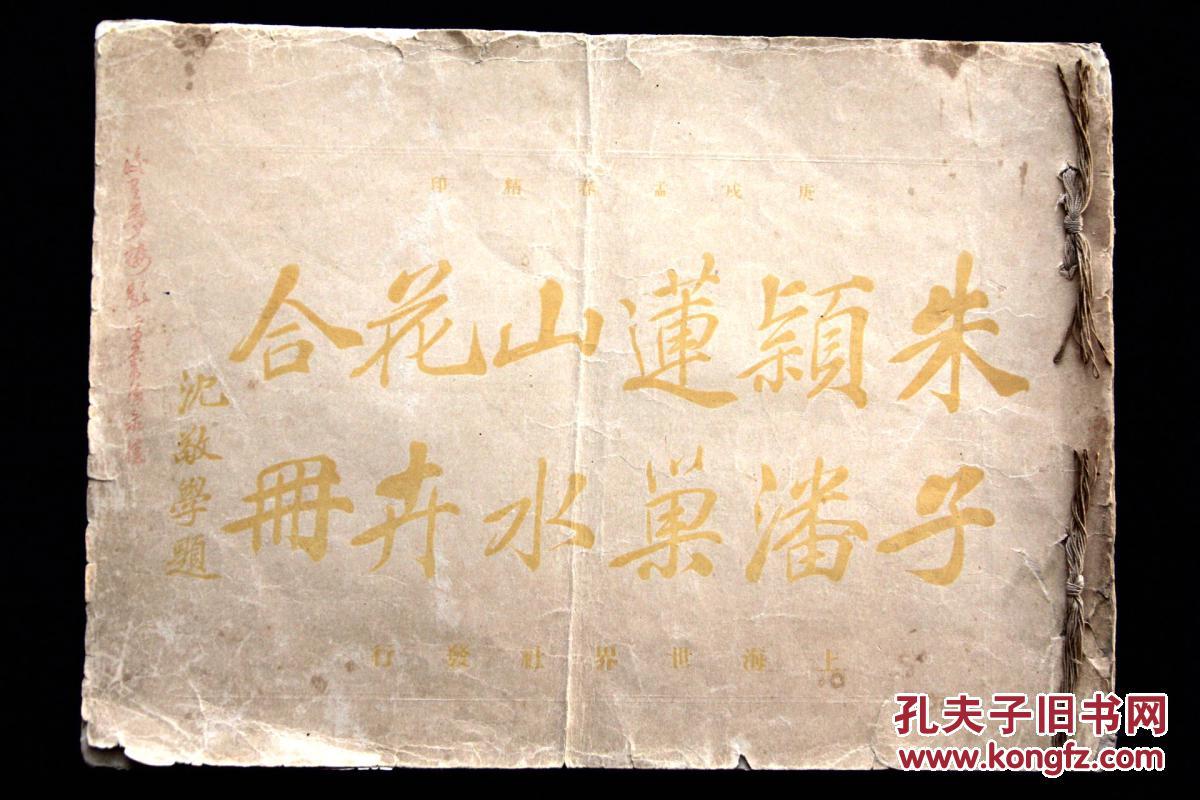 庚戌孟春精印
朱子
穎潘
蓮巢
山水
花卉
合冊
沈敬學題
上海世界社發行
孔夫子旧书网
www.kongfz.com